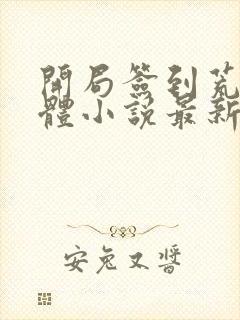 開局簽到荒
體小說最新
安兔又醬